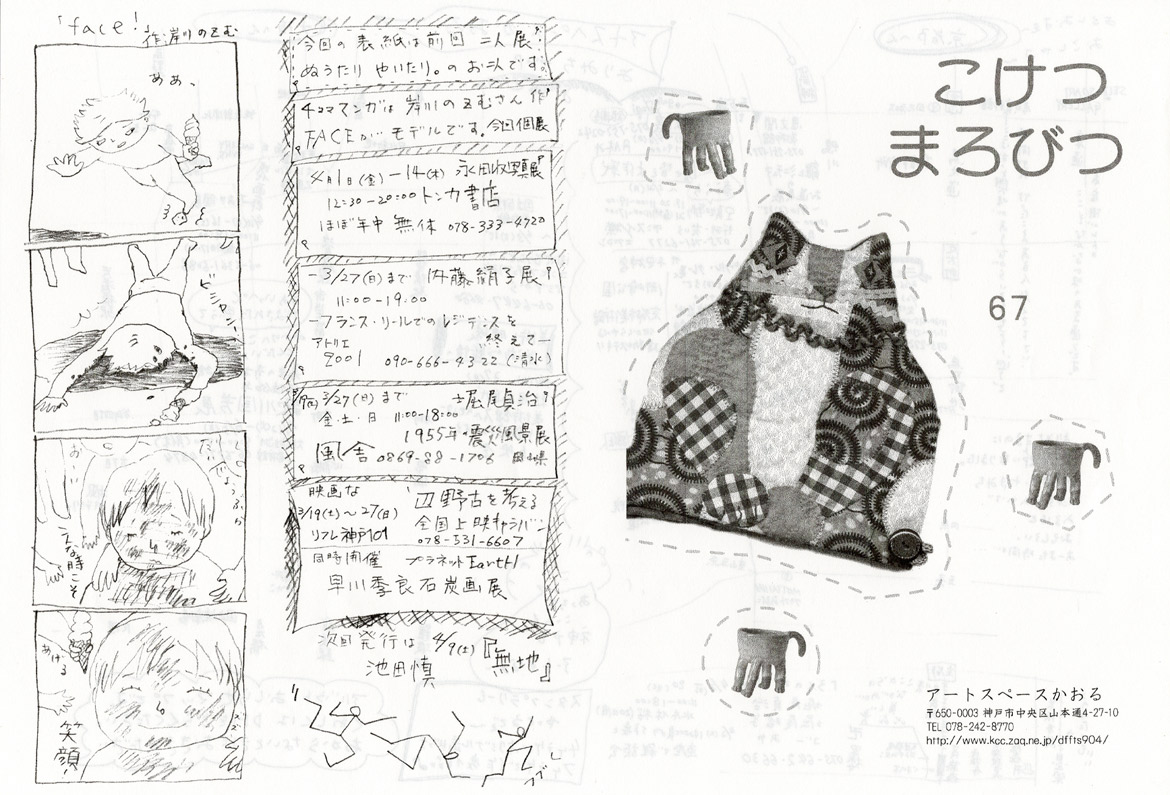 「face!」
作 岸川のぞむ
ああ、
お
こんな時こそ
あげる
笑顔
今回の表紙は前回 二人展
ぬうたり やいたり。の お二人です。
4コママンガは 岸川のぞむさん 作
FACEが モデルです。今回個展
4月1日(金)ー14(木) 永田收写真展
12:30-20:00 トンカ書店
ほぼ年中 無休 078-333-4720
-3/27(日)まで 内藤絹子展
11:00-19:00
ーフランス・リールでのレジデンスを
終えてー
アトリエ
2001 090-666-4322 (清水)
3/27(日)まで 堀尾貞治
金・土・日 11:00-18:00
1955年 震災風景展
風舎 0869-88-1706 岡山県
映画な
3/19(土)~27(日)
リフレ神戸101
辺野古を考える
全国上映キャラバン
078-531-6607
同時開催 プラネットEarth
早川季良石炭画展
次回発行は 4/9(土)
池田慎 『無地』
こけつ
まろびつ
67
アートスペースかおる
〒650-0003 神戸市中央区山本通4-27-10
TEL 078-242-8770
http://www.kcc.zaq.ne.jp/dffts904/